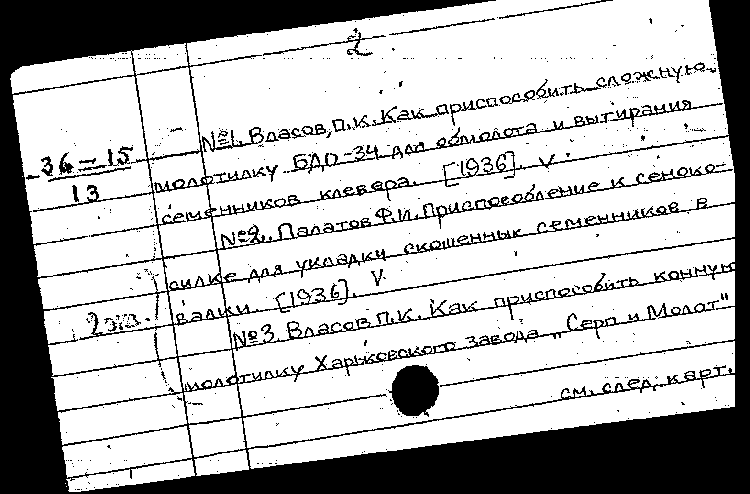 2.
№1. Власов, П.К. Как приспособить сложную
36-15
13
молотилку БДО-34 для обмолота и вытирания
семенников клевера. [1936]. V
№2. Палатов Ф.И. Приспособление к сеноко-
силке для укладку скошенных семенников в
валки. [1936]. V
2 экз.
№3. Власов П.К. Как приспособить конную
молотилку Харьковского завода „Серп и Молот"
см. след. карт.